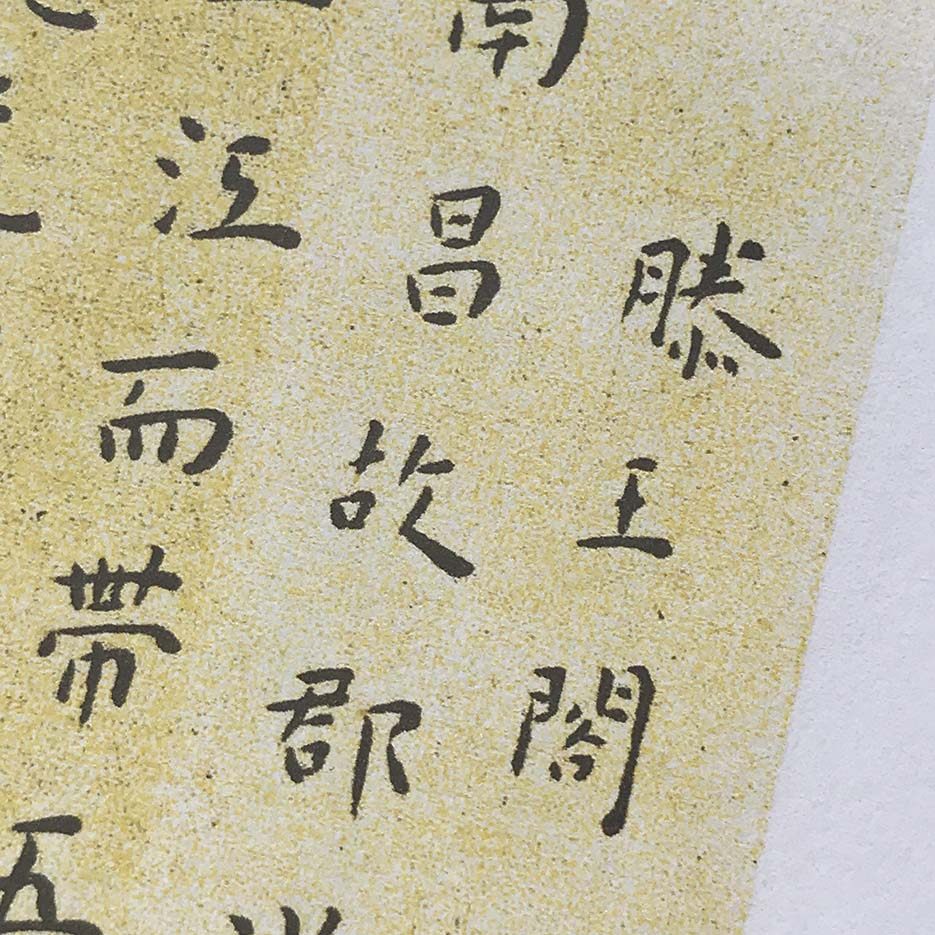 滕王閣
南昌故郡
江而帶五